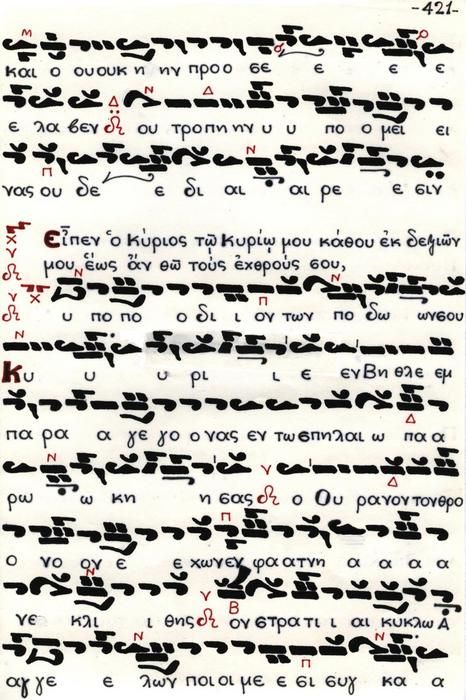 -421-
και ο ουουκ η ην προο σε ε ε ε ε
ε λα βεν ου τροπη ην υ υ πο ο μει ει
νας ου δε ε δι αι αι ρε ε σιν
Εἶπεν ὁ Κύριος τῷ Κυρίῳ μου κάθου ἐκ δεξιῶν
μου, ἕως ἄν θῶ τούς ἐχθρούς σου,
υ πο πο ο δι ι ον των πο δω ωνσου
Κυ υ υ ρι ι ε ενΒη θλε εμ
πα ρα α γε γο ο νας εν τω σπηλαι ω πα α
ρω ω κη η σας ο Ου ρανοντονθρο
ο νο ον ε ε χωνεν φα ατνη α α α α
νε κλι ι θης ον στρα τι ι αι κυκλω Α
αγ γε ε λων ποι οι με ε σι συγ κα α